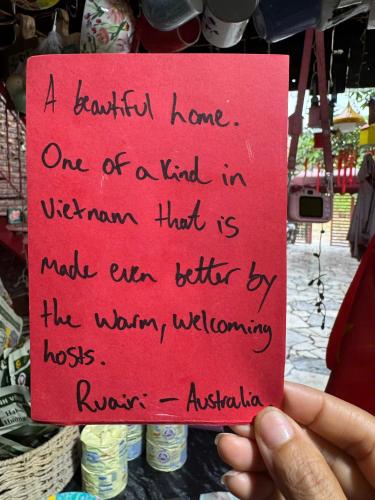 A beautiful home.
One of a kind in
Vietnam that is
made even better by
the warm, welcoming
hosts.
Ruairi – Australia